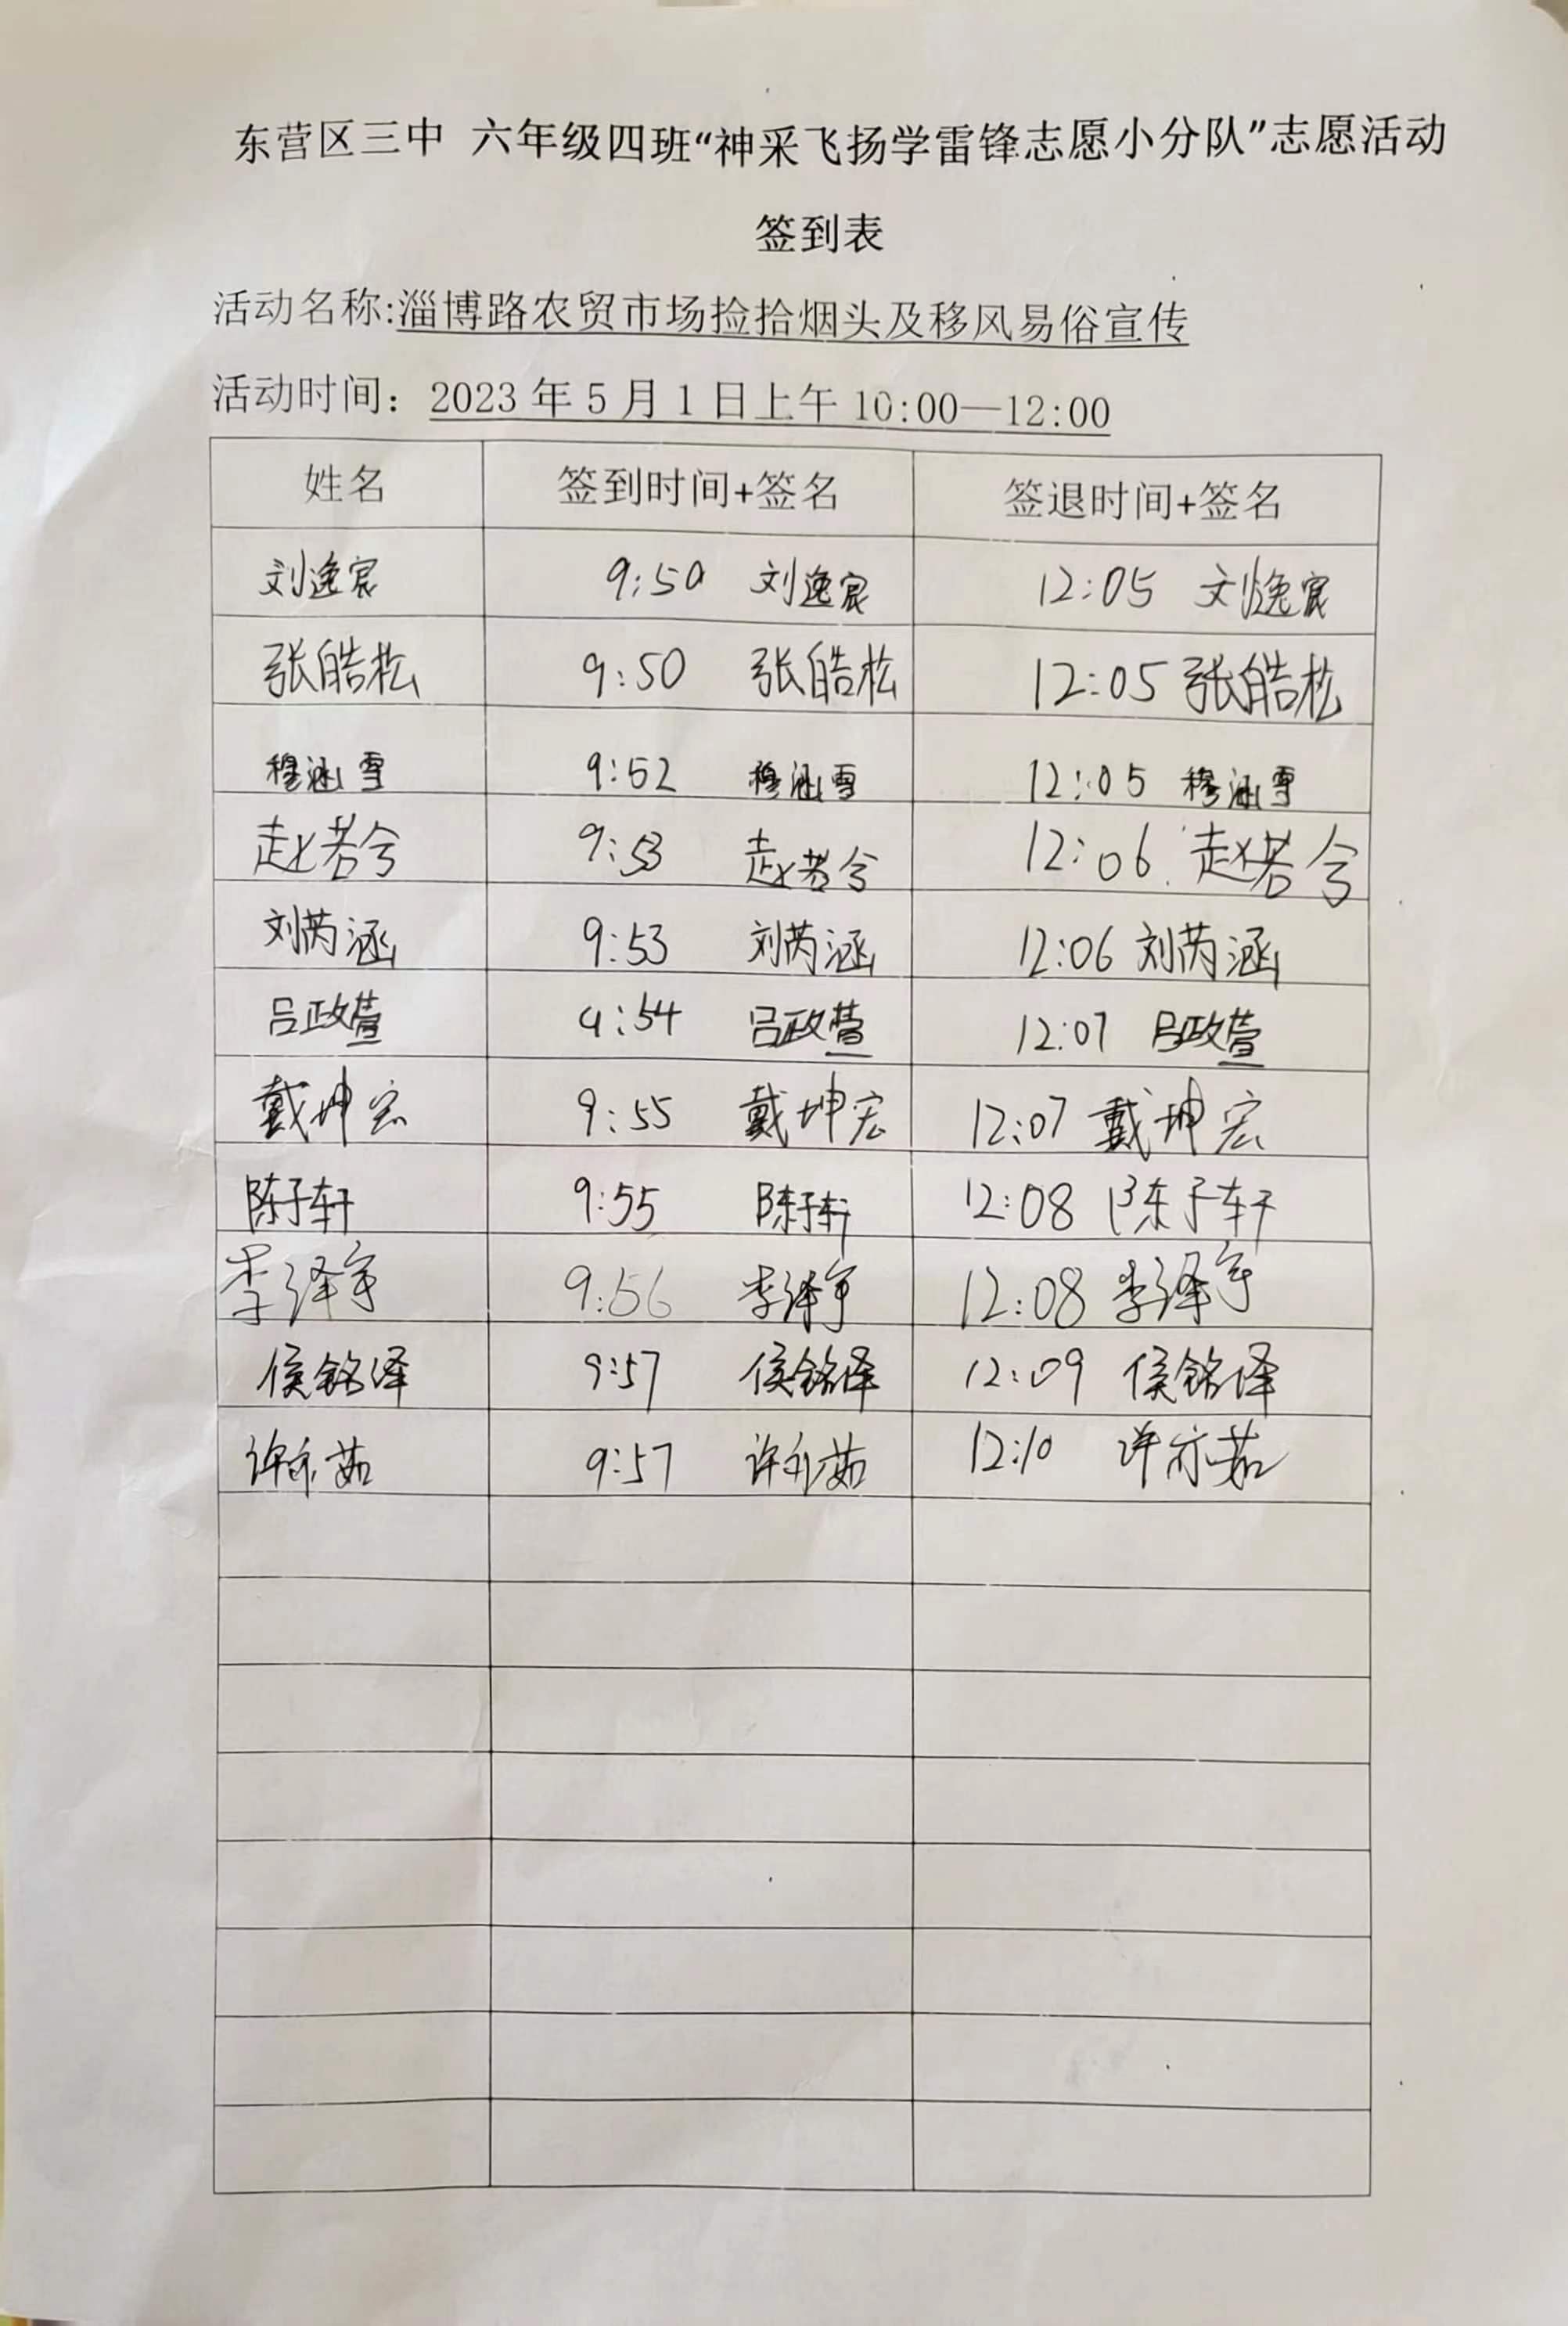 东营区三中 六年级四班“神采飞扬学雷锋志愿小分队”志愿活动
签到表
活动名称:淄博路农贸市场捡拾烟头及移风易俗宣传
活动时间：2023年5月1日上午10:00—12:00
姓名 签到时间+签名 签退时间+签名
刘逸宸 9:50 刘逸宸 12:05 刘逸宸
张皓松 9:50 张皓松 12:05 张皓松
穆涵雪 9:52 穆涵雪 12:05 穆涵雪
赵若兮 9:53 赵若兮 12:06 赵若兮
刘芮涵 9:53 刘芮涵 12:06 刘芮涵
吕政萱 9:54 吕政萱 12:07 吕政萱
戴坤宏 9:55 戴坤宏 12:07 戴坤宏
陈子轩 9:55 陈子轩 12:08 陈子轩
李泽宇 9:56 李泽宇 12:08 李泽宇
侯铭泽 9:57 侯铭泽 12:09 侯铭泽
许亦茹 9:57 许亦茹 12:10 许亦茹